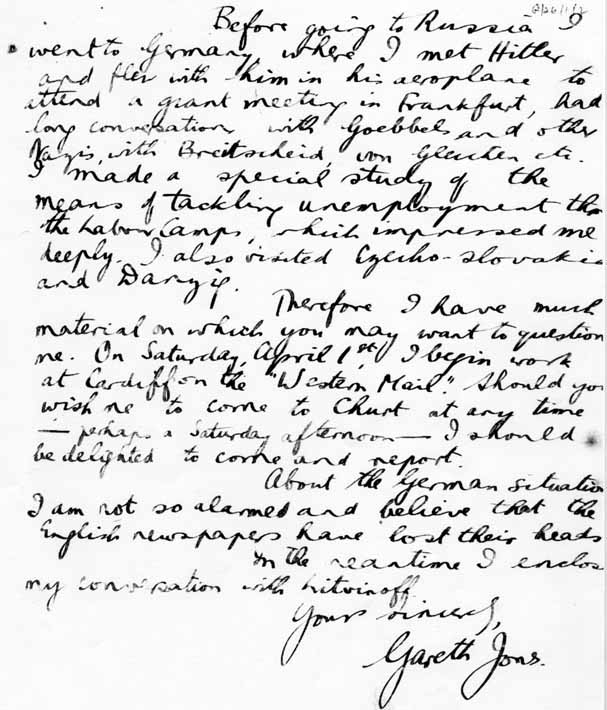 G/26/1/2
Before going to Russia I
went to Germany where I met Hitler
and flew with him in his aeroplane to
attend a giant meeting in Frankfurt, had
long conversations with Goebbels and other
Nazis, with Breitscheid, von Gleichen etc.
I made a special study of the
means of tackling unemployment thro
the Labour Camps, which impressed me
deeply. I also visited Czecho-slovakia
and Danzig.
Therefore I have much
material on which you may want to question
me. On Saturday, April 1st, I begin work
at Cardiff on the "Western Mail". Should you
wish me to come to Churt at any time
— perhaps a Saturday afternoon — I should
be delighted to come and report.
About the German situation
I am not so alarmed and believe that the
English newspapers have lost their heads
In the meantime I enclos
my conversation with Litvinoff.
Yours sincerely,
Gareth Jones.